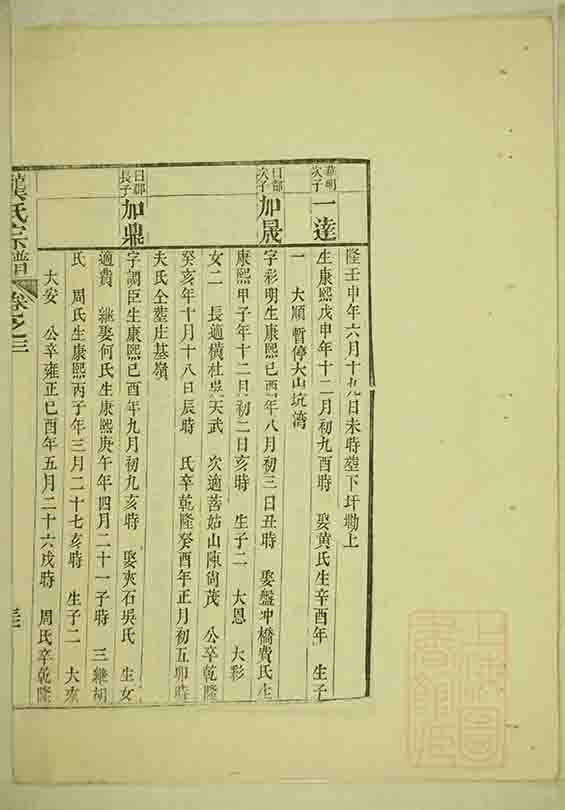 隆壬申年六月十九日未時塟下圩墈上
華明次子
一達
生康熙戊申年十二月初九酉時 娶黄氏生辛酉年 生子
一 大順暫停大山坑湾
曰郡次子
加晟
字彩明生康熙己酉年八月初三日丑時 娶盤冲橋費氏生
康熙甲子年十二月初二日亥時 生子二 大恩 大彩
女二 長適橫杜吳天武 次適菩姑山陳尚茂 公卒乾隆
癸亥年十月十八日辰時 氏卒乾隆癸酉年正月初五卯時
夫氏仝塟庄基嶺
曰郡長子
加鼎
字調臣生康熙己酉年九月初九亥時 娶夾石吳氏 生女
適費 繼娶何氏生康熙庚午年四月二十一子時 三繼胡
氏 周氏生康熙丙子年三月二十七亥時 生子二 大亥
大安 公卒雍正己酉年五月二十六戌時 周氏卒乾隆
氏宗譜 卷之三